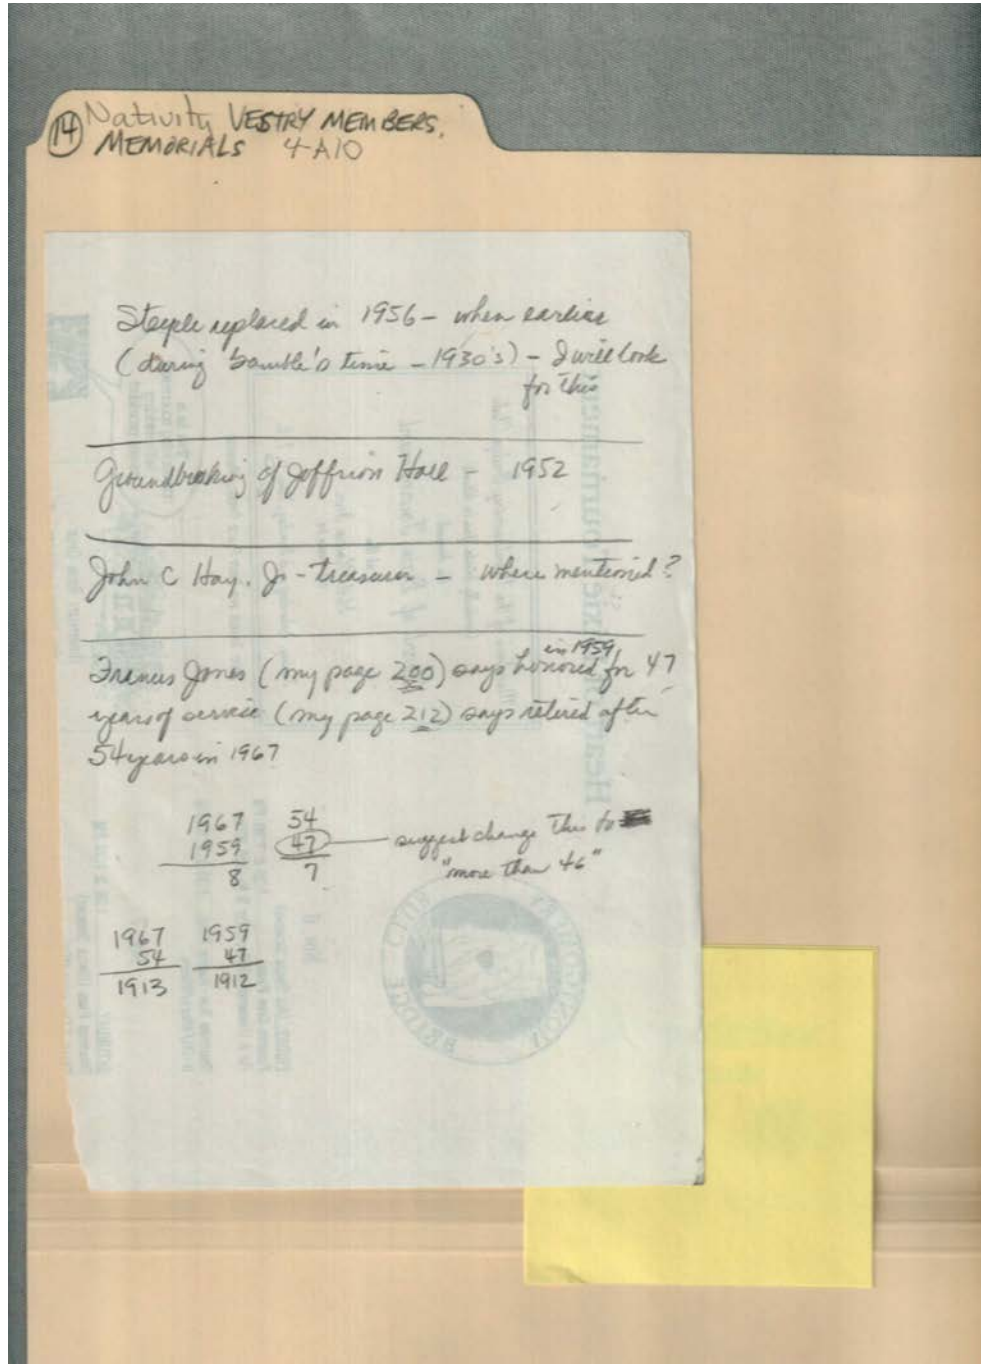 14 Nativity VESTRY MEMBERS,
MEMORIALS 4-A10
Steeple replaced in 1956 - when earlier
(during Gamble's time - 1930's) - I will look
for this
Groundbreaking of Joffrion Hall - 1952
John C Hay, Jr - treasurer - where mentioned?
in 1959
Francis Jones (my page 200) says honored for 47
years of service (my page 212) says retired after
54 years in 1967
1967 54
1959 47 suggest change this to
8 7 "more than 46"
1967 1959
54 47
1913 1912
BRIDGE CLUB